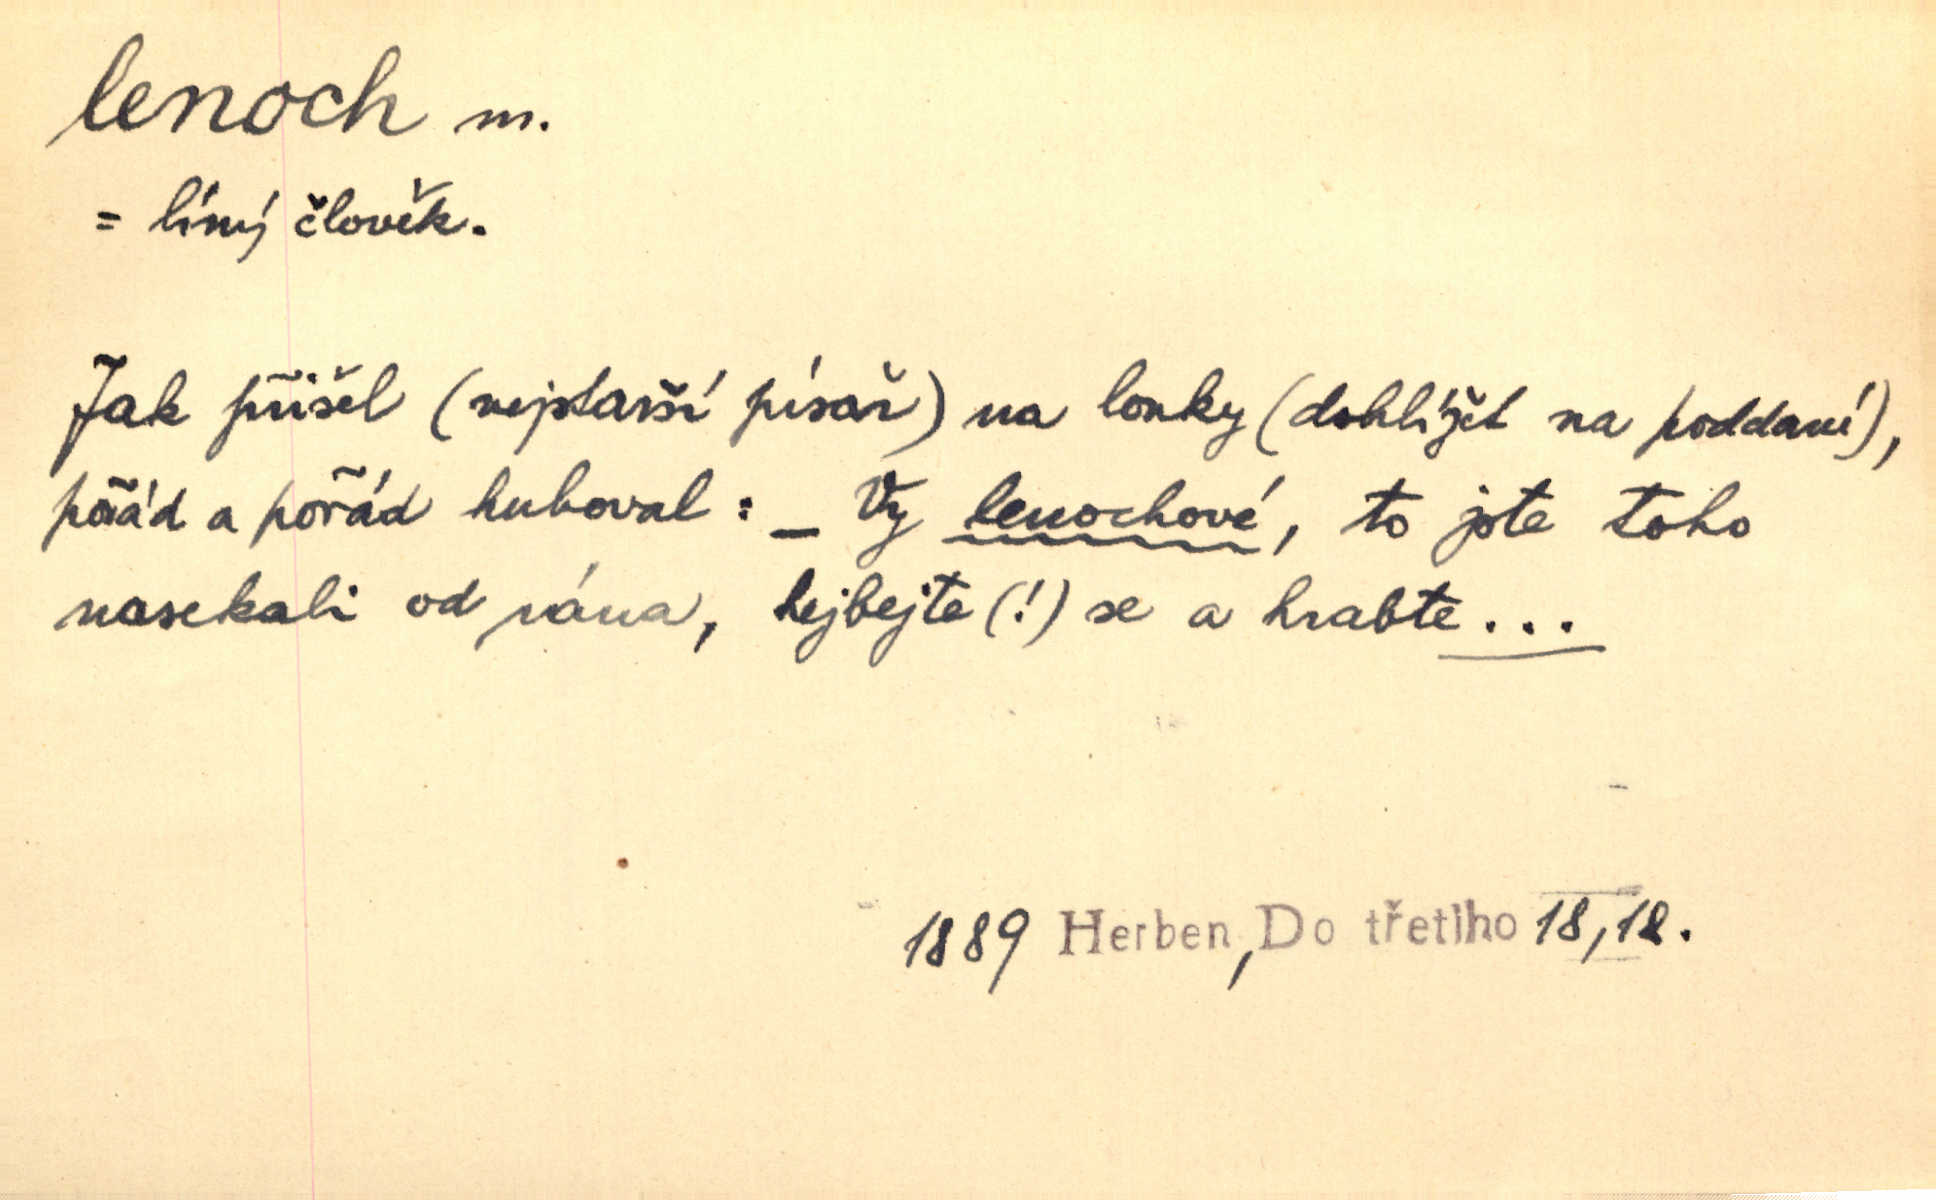 lenoch m.
= líný člověk.
Jak přišel (nejstarší písař) na louky (dohlížet na poddané),
pořád a pořád huboval: – Vy lenochové, to jste toho
nasekali od rána, hejbejte (!) se a hrabte...
1889 Herben, Do třetího 18, 12.